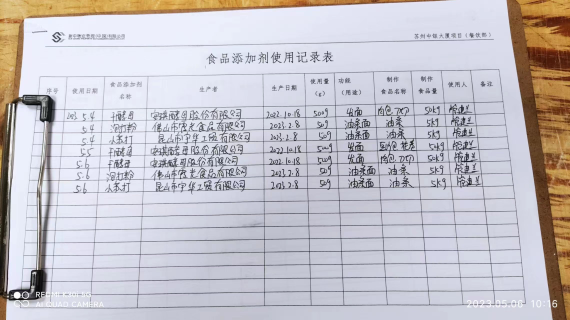 苏州中银大厦项目（餐饮部）
食品添加剂使用记录表
序号 使用日期 食品添加剂名称 生产者 生产日期 使用量（g） 功能（用途） 制作食品名称 制作食品量 使用人 备注
2023.5.4 干酵母 安琪酵母股份有限公司 2022.10.18 500g 发面 50kg
5.4 泡打粉 佛山市 食品有限公司 2023.2.8 50g 油条面 油条 5kg
5.4 小苏打 昆山市宇华工贸有限公司 2023.2.8 50g 油条面 油条 5kg
5.5 干酵母 安琪酵母股份有限公司 2022.10.18 500g 发面 50kg
5.6 干酵母 安琪酵母股份有限公司 2022.10.18 500g 发面 50kg
5.6 泡打粉 佛山市 食品有限公司 2023.2.8 50g 油条面 油条 5kg
5.6 小苏打 昆山市宇华工贸有限公司 2023.2.8 50g 油条面 油条 5kg
REDMI K30 5G
AI QUAD CAMERA
2023.05.06 10:16